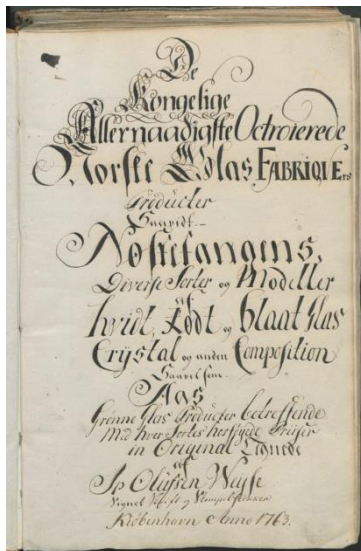 De
Kongelige
Allernaadigste Octroierede
Norske Glas FABRIQUErs
Producter
Saavidt
Nöstetangens,
Diverse Sorter og Modeller
af
hvidt, Rödt og Blaat Glas
Crÿstal og anden Composition
Saavelsom
Aas
Grönne Glas Producter betreffende
Med hver Sortes hosföyede Priiser
in Original Tegnede
af
Ip Olüfsen Weyse
Kiöbenhavn Anno 1763.